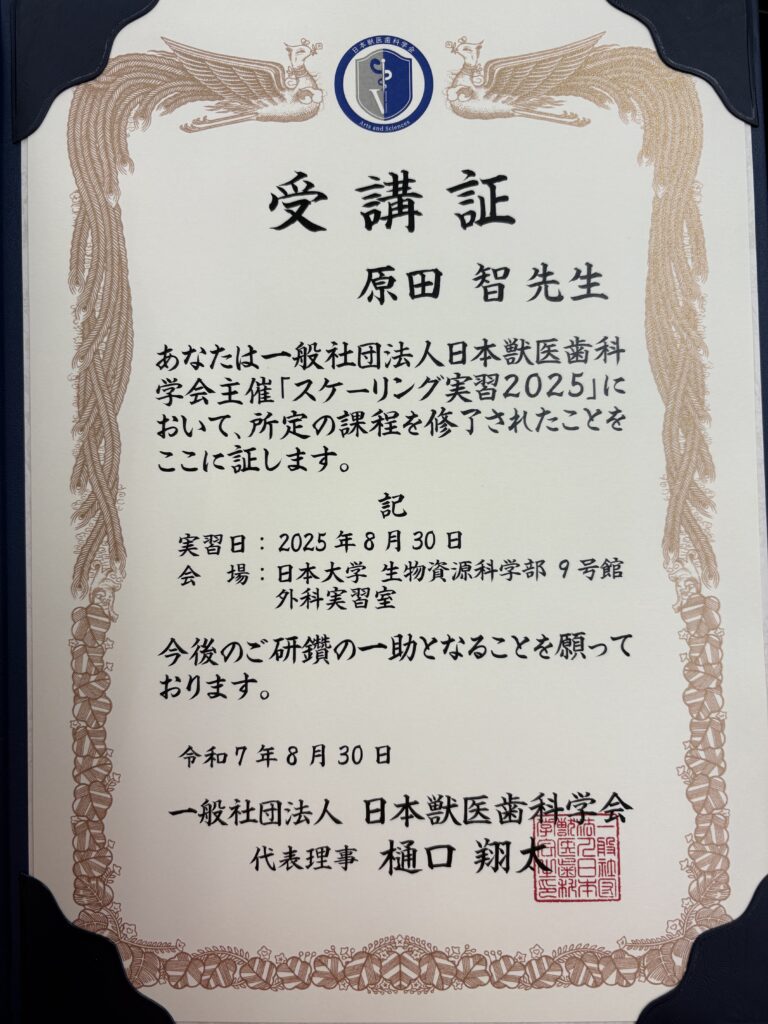 日本獣医歯科学会
Arts and Sciences
受講証
原田 智先生
あなたは一般社団法人日本獣医歯科
学会主催「スケーリング実習2025」に
おいて、所定の課程を修了されたことを
ここに証します。
記
実習日：2025年8月30日
会　場：日本大学 生物資源科学部 9号館
外科実習室
今後のご研鑽の一助となることを願って
おります。
令和7年8月30日
一般社団法人 日本獣医歯科学会
代表理事 樋口 翔太